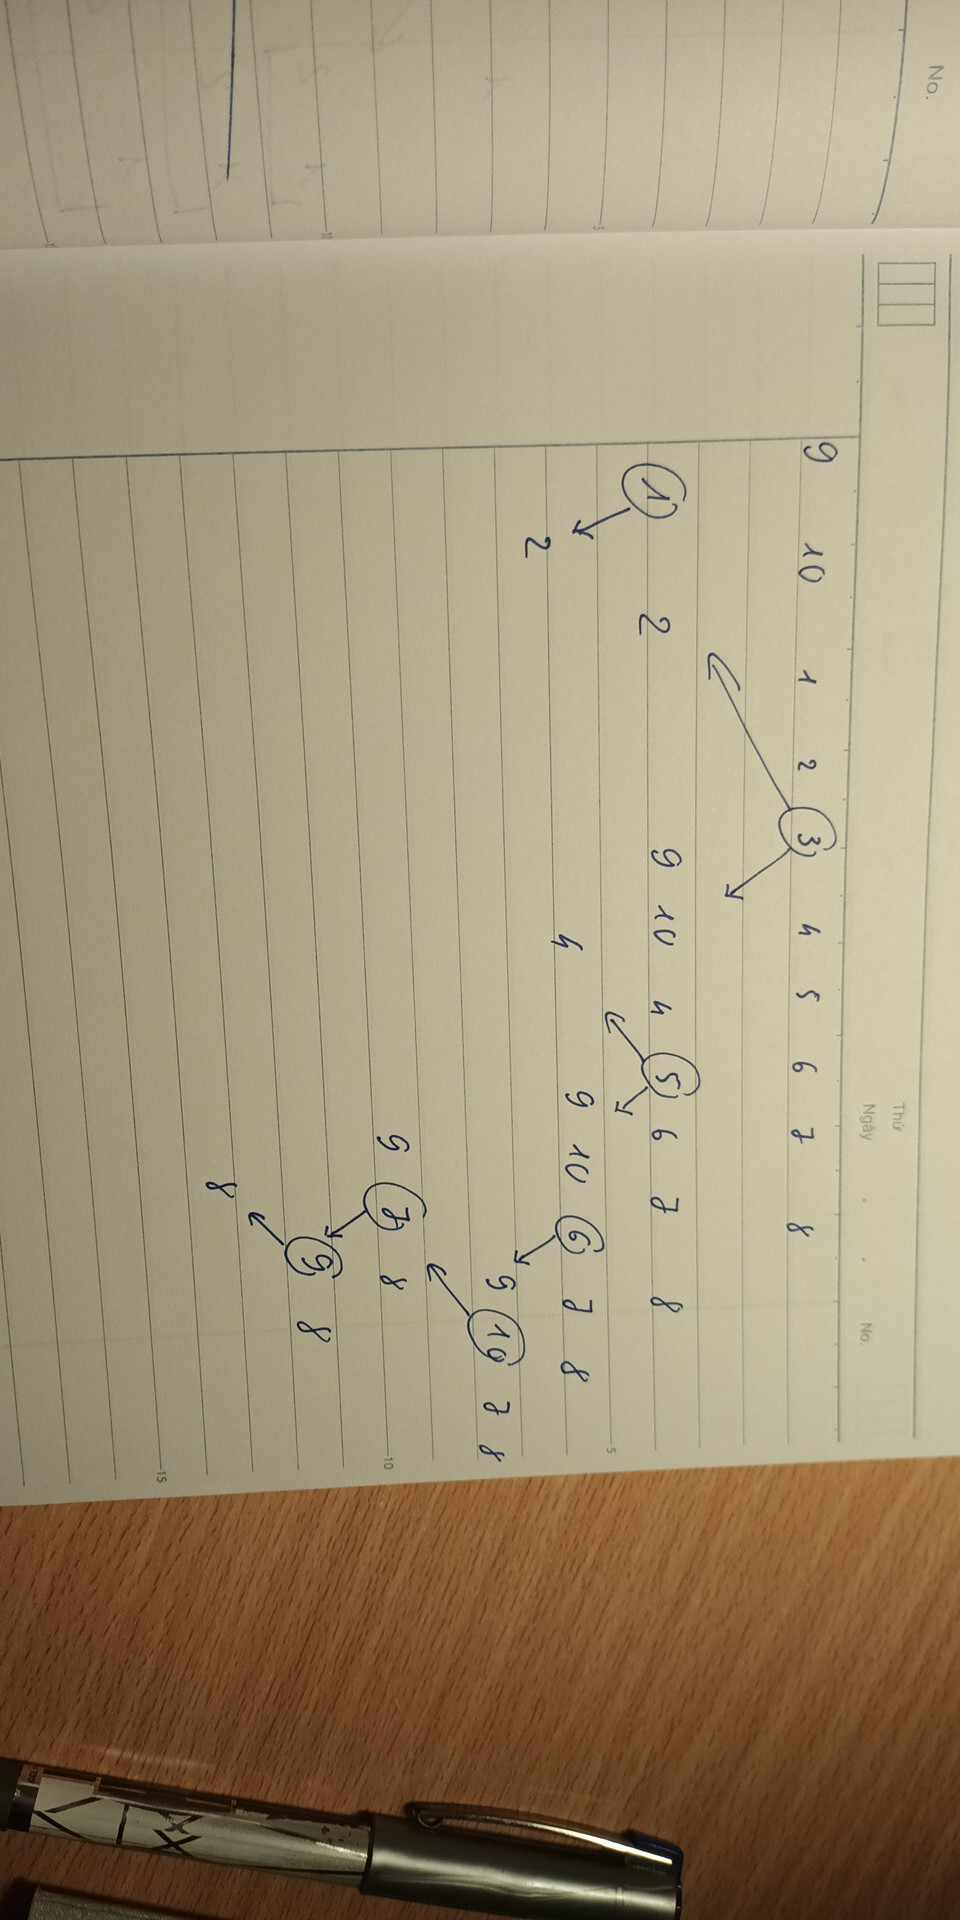 No.
Thứ
Ngày . . No.
9 10 1 2 3 4 5 6 7 8
1 2 9 10 4 5 6 7 8
5
2 4 9 10 6 7 8
9 10 7 8
9 7 8
10
9 8
8
15